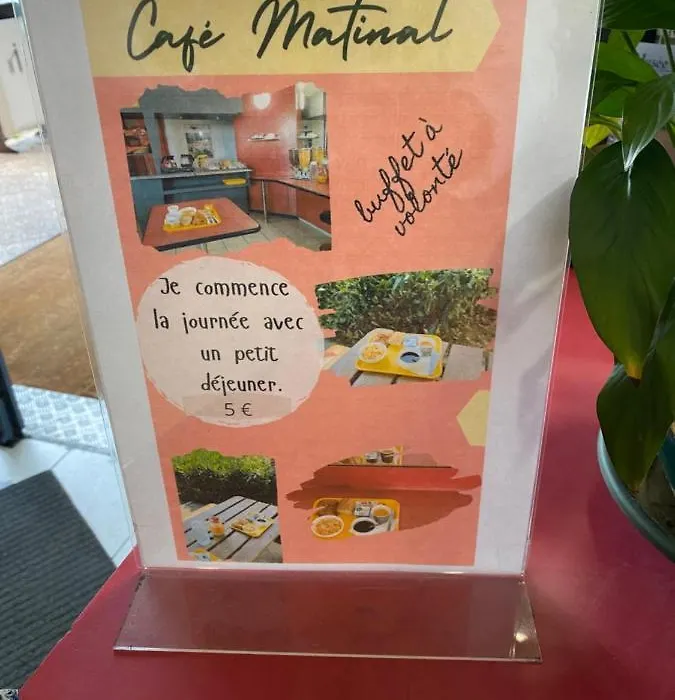 Café Matinal
buffet à
volonté
Je commence
la journée avec
un petit
déjeuner.
5 €